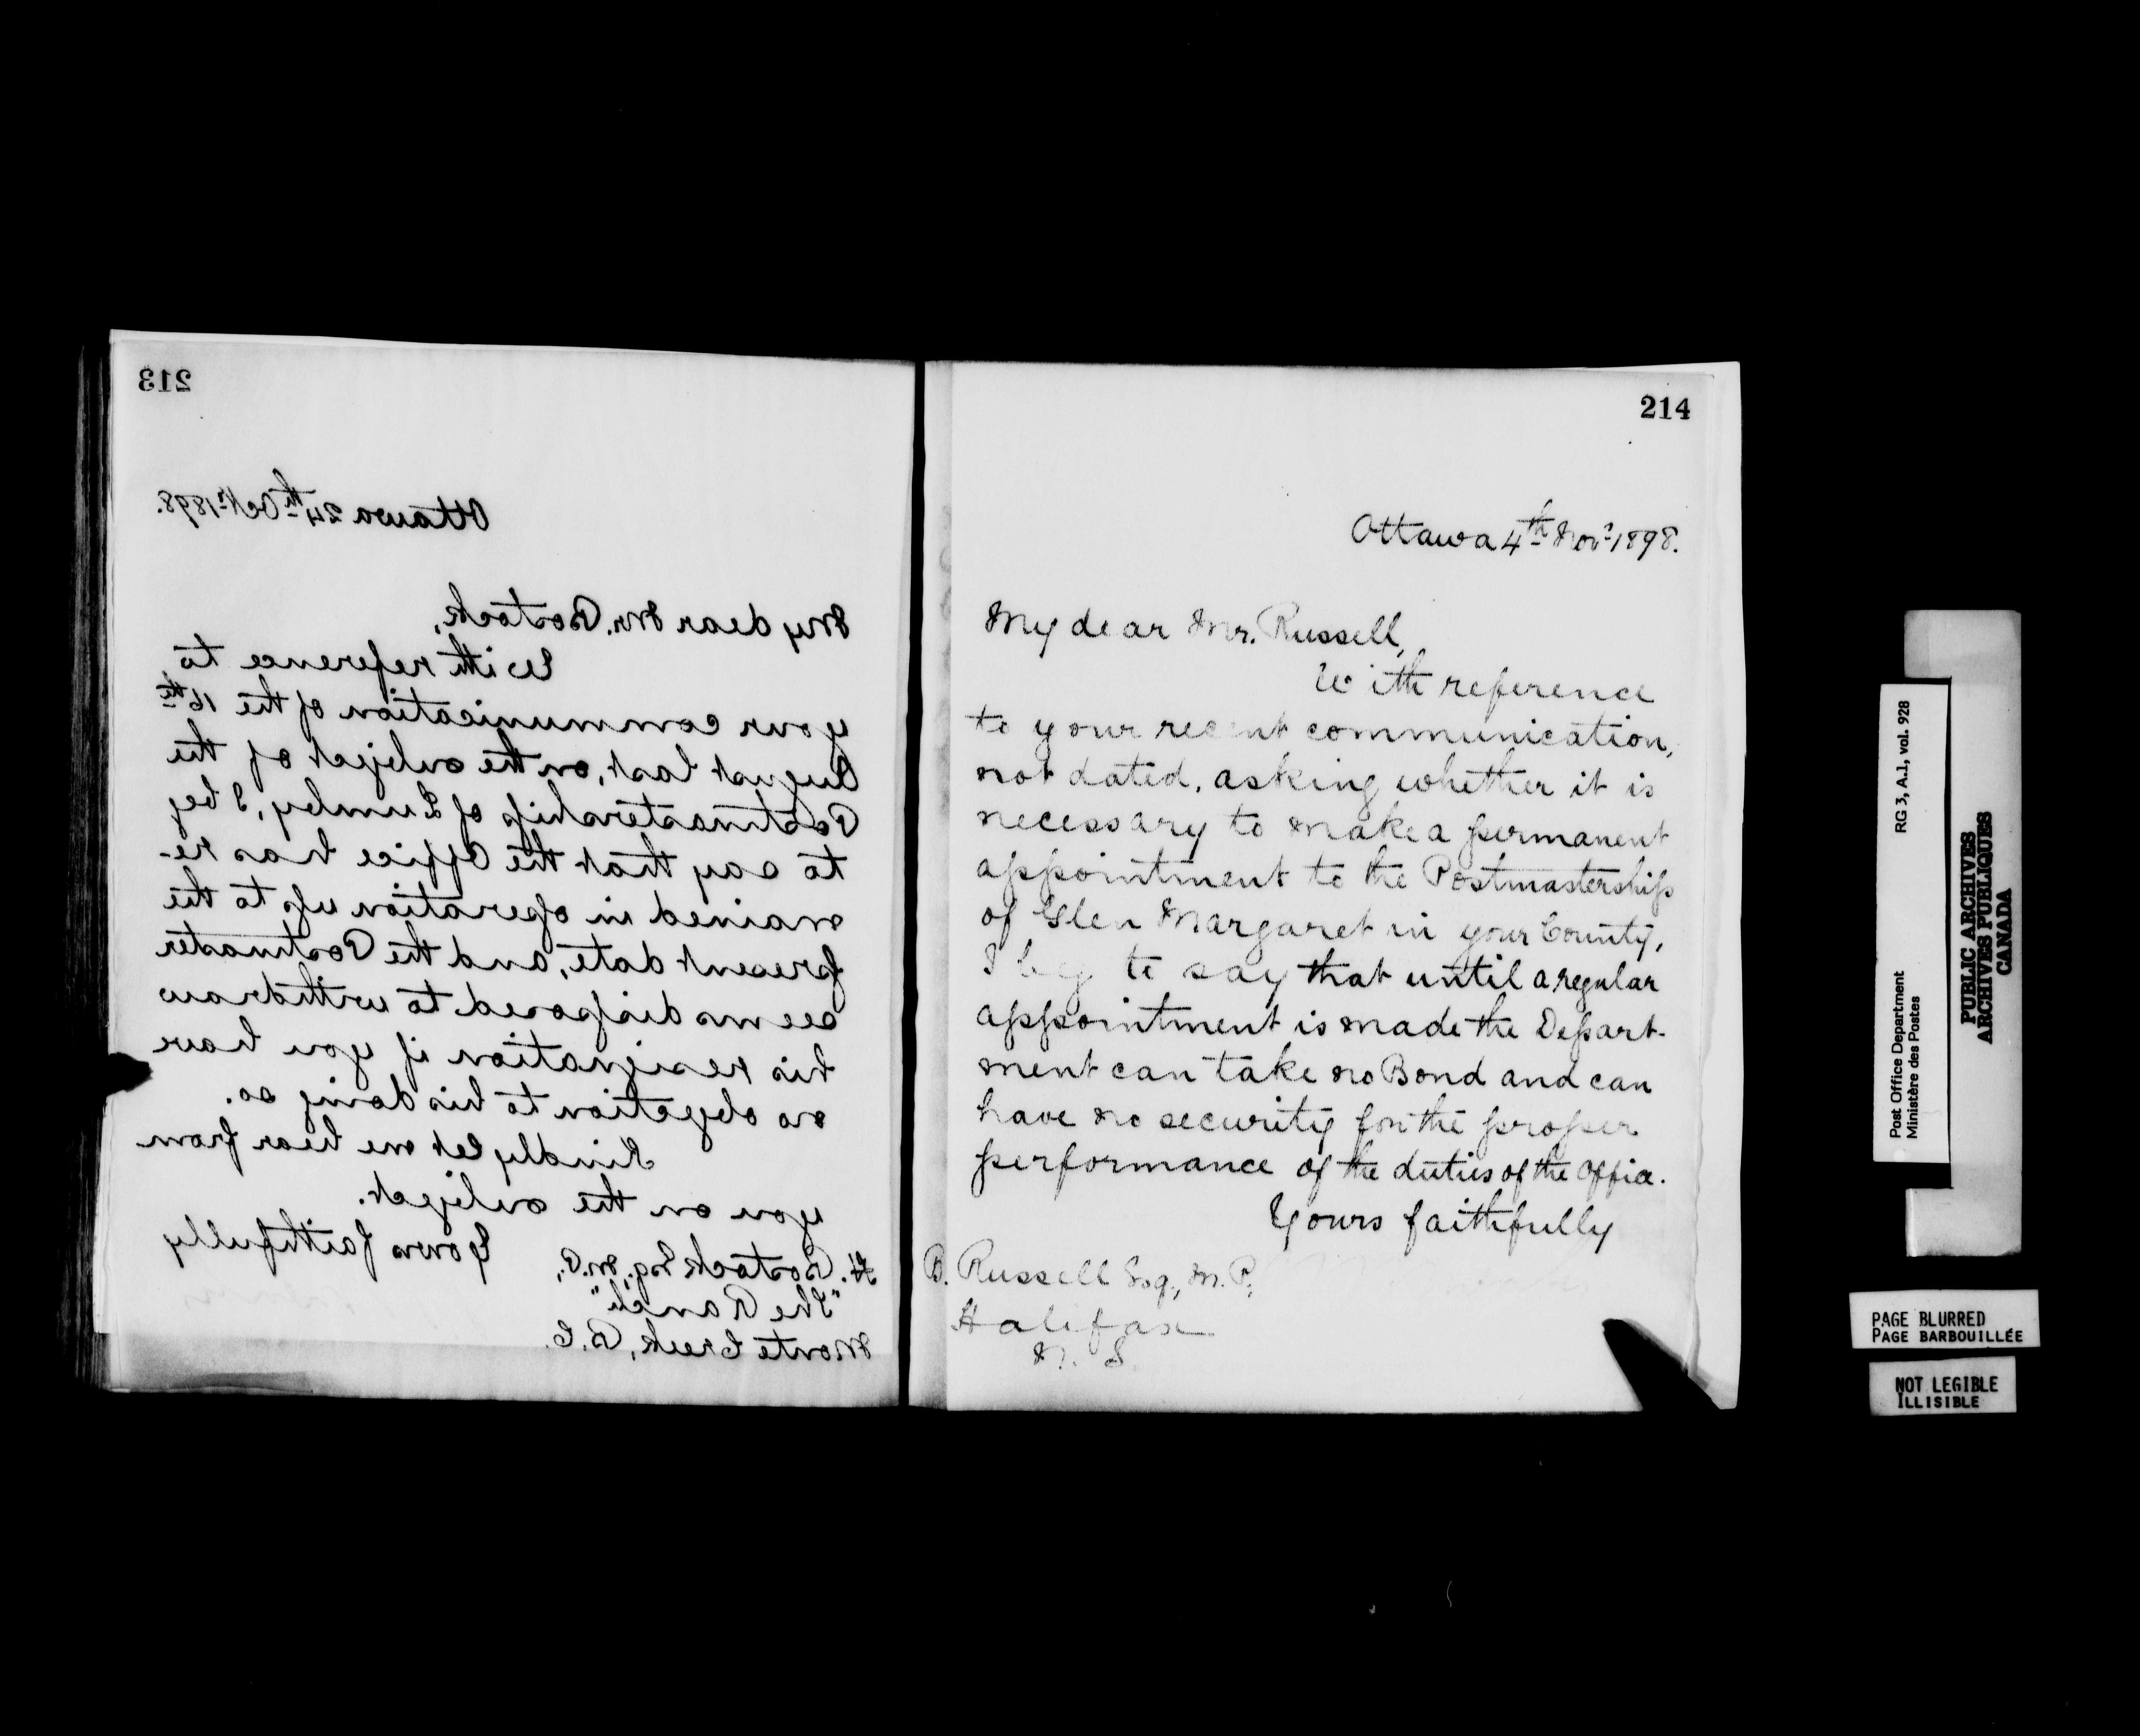 213
Ottawa 24th Octr 1898.
My dear Mr. Bostock,
With reference to
your communication of the 16th
August last, on the subject of the
Postmastership of Lumby, I beg
to say that the Office has re-
mained in operation up to the
present date, and the Postmaster
seems disposed to withdraw
his resignation if you have
no objection to his doing so.
Kindly let me hear from
you on the subject.
Yours faithfully
H. Bostock Esq., M.P.,
"The Ranch"
Monte Creek, B.C.
214
Ottawa 4th Novr 1898.
My dear Mr. Russell,
With reference
to your recent communication,
not dated, asking whether it is
necessary to make a permanent
appointment to the Postmastership
of Glen Margaret in your County,
I beg to say that until a regular
appointment is made the Depart-
ment can take no Bond and can
have no security for the proper
performance of the duties of the Office.
Yours faithfully
B. Russell Esq., M.P.,
Halifax
N. S.
Post Office Department
Ministère des Postes
RG 3, A.1, vol. 928
PUBLIC ARCHIVES
ARCHIVES PUBLIQUES
CANADA
PAGE BLURRED
PAGE BARBOUILLÉE
NOT LEGIBLE
ILLISIBLE